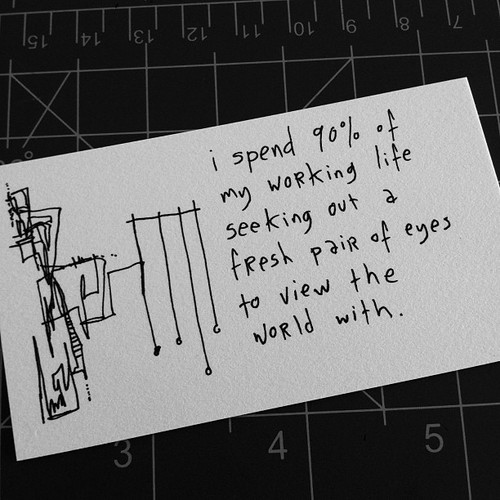 15 14 13 12 11 10 9 8 7
i spend 90% of
my working life
seeking out a
fresh pair of eyes
to view the
world with.
3 4 5